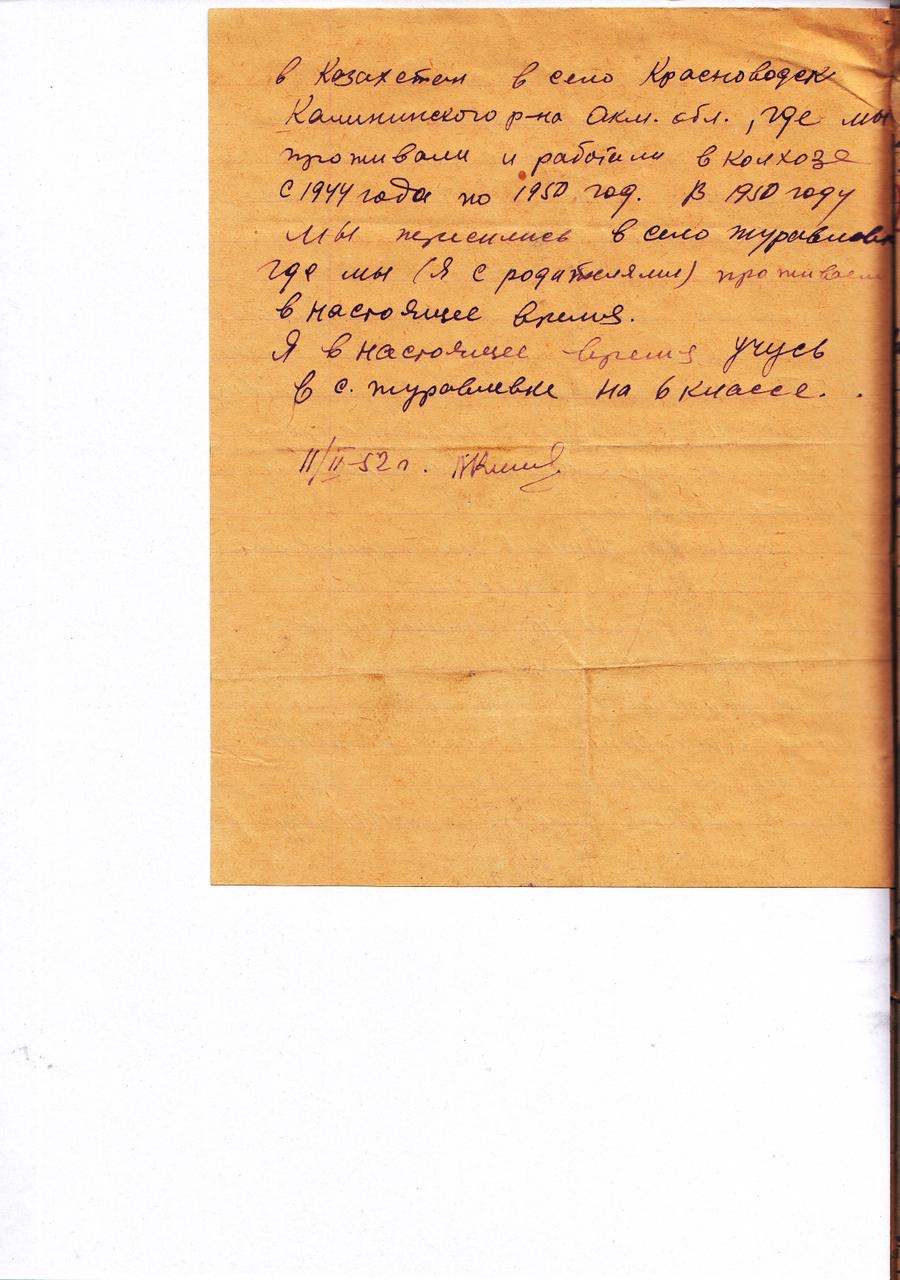 в Казахстан в село Красноводск
Калининского р-на Акм. обл., где мы
проживали и работали в колхозе
с 1944 года по 1950 год. В 1950 году
мы пересились в село Журавлевк
где мы (Я с родителями) проживаем
в настоящее время.
Я в настоящее время учусь
в с. Журавлевке на 6 классе.
11/II-52 г.